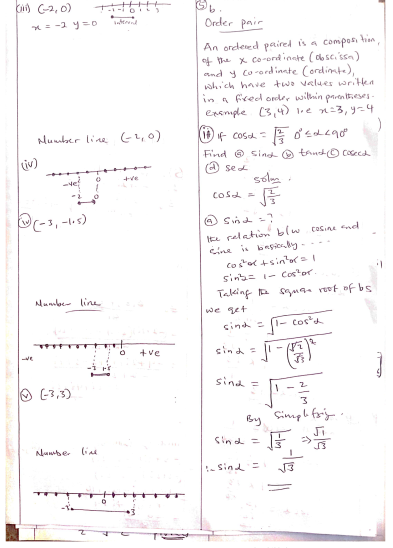 (iii) (-2,0)
x = -2 y = 0
interval
Number line (-2, 0)
(iv)
-ve 0 +ve
-2 0
(iv) (-3, -1.5)
Number line
-ve 0 +ve
-3 -1.5
(v) (-3,3)
Number line
0
-3 3
(5) b.
Order pair
An ordered paired is a composition,
of the x co-ordinate (abscissa)
and y co-ordinate (ordinate),
which have two values written
in a fixed order within parentheses.
example (3,4) i.e x=3, y=4
(ii) If cosα = √2/3 0° ≤ α < 90°
Find (a) sinα (b) tanα (c) cosecα
(d) secα
soln
cosα = √2/3
(a) sinα = ?
the relation b/w cosine and
sine is basically ....
cos²α + sin²α = 1
sin²α = 1 - cos²α
Taking the square root of bs
we get
sinα = √1 - cos²α
sinα = √1 - (√2/√3)²
sinα = √1 - 2/3
By Simplifying.
sinα = √1/3 ⇒ √1/√3
∴ sinα = 1/√3